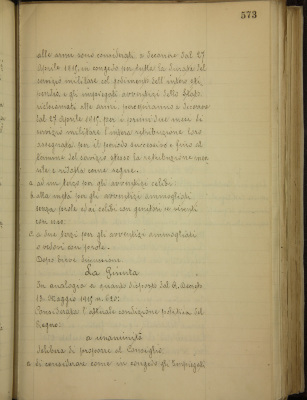 373
alle armi sono considerati a decorrere dal 27
Aprile 1915, in congedo per tutta la durata del
servizio militare col godimento dell'intero sti
pendio, e gli impiegati avventizi dello Stato
richiamati alle armi percepiranno a decorrere
dal 27 Aprile 1915 per i primi due mesi di
servizio militare l'intera retribuzione loro
assegnata per il periodo successivo e fino al
termine del servizio stesso la retribuzione
è ridotta come segue:
a ad un terzo per gli avventizi celibi;
b alla metà per gli avventizi ammogliati
senza prole ed ai celibi con genitori
con essi.
c a due terzi per gli avventizi ammogliati
o vedovi con prole.
Dopo breve discussione
La Giunta
In analogia a quanto disposto dal R. Decreto
13 Maggio 1915 n. 620;
Considerata l'attuale condizione politica del
Regno;
a unanimità
delibera di proporre al Consiglio:
a di considerare come in congedo gli Impiegati